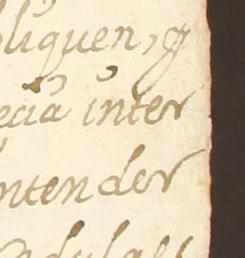 bliquen, q
ecia inter
ntender